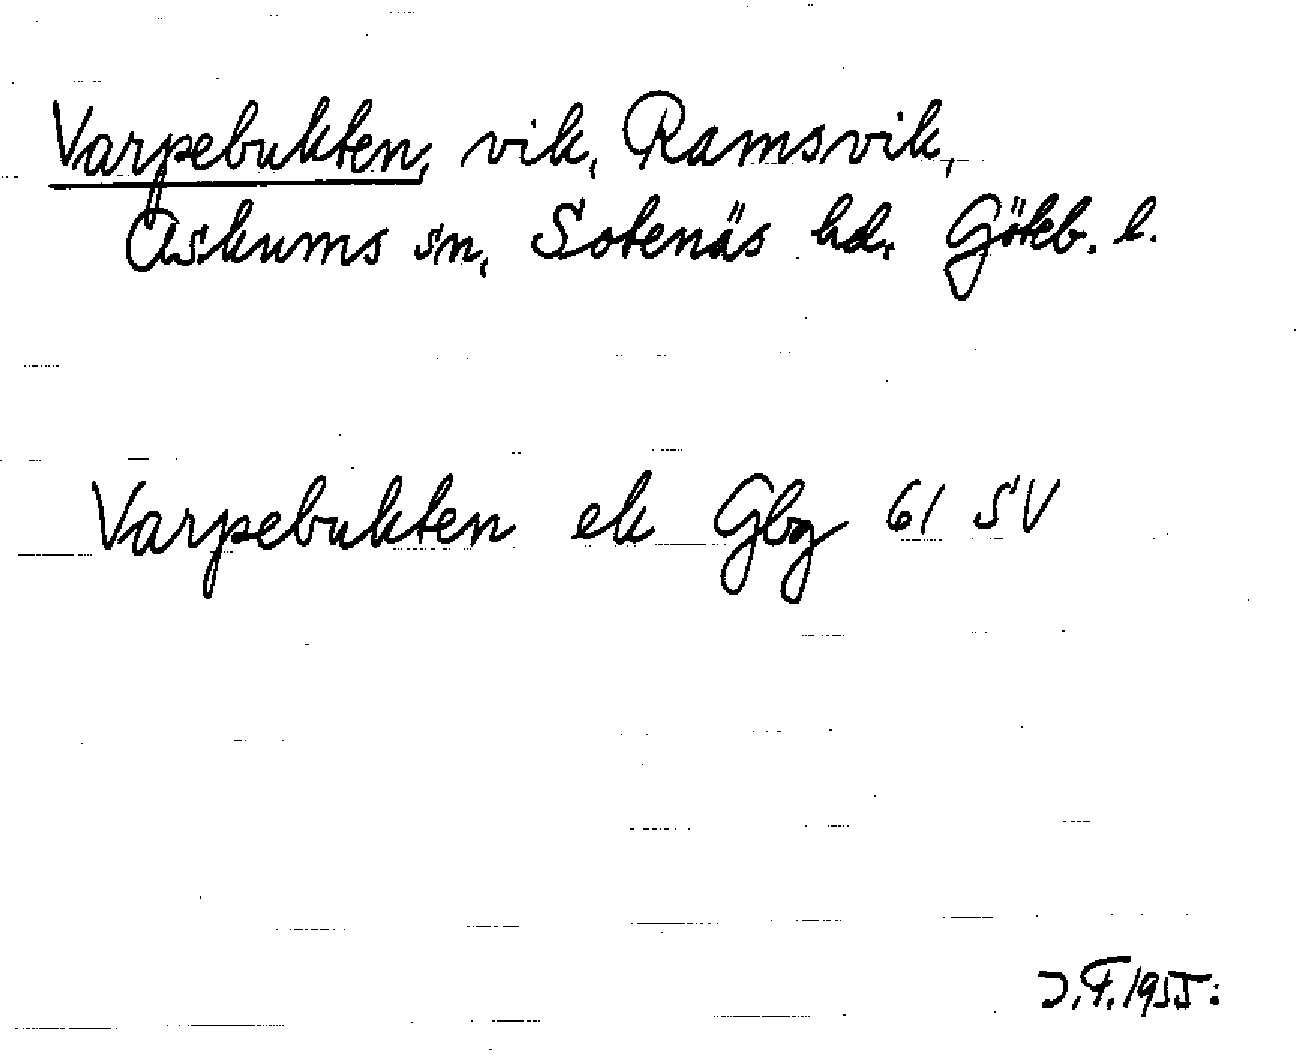 Varpebukten, vik, Ramsvik,
Askums sn, Sotenäs hd, Göteb. l.
Varpebukten ek Gbg 61 SV
J.F. 1955.